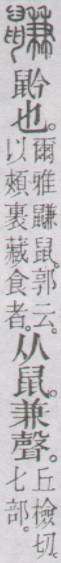 鼸
䶃也。
爾雅鼸鼠。郭云。
以頰裹藏食者。
从鼠。兼聲。
丘檢切。
七部。